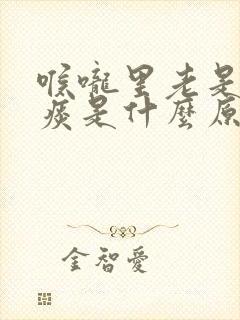 喉嚨里老是
痰是什麼原
金智愛